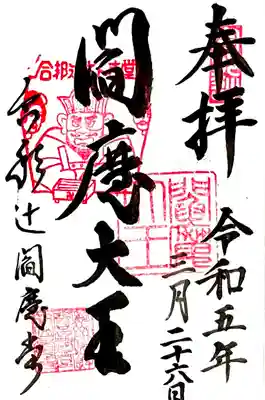 奉拝
令和五年
三月二十六日
閻魔大王
合邦辻閻魔堂